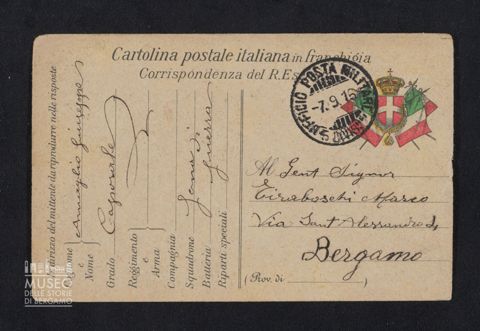 Cartolina postale italiana in franchigia
Corrispondenza del R. Es
UFFICIO POSTA MILITARE
-7.9.15
Al Gent Signor
Tiraboschi Marco
Via Sant Alessandro
Bergamo
(Prov. di )
Indirizzo del mittente da riprodurre nelle risposte
Nome
Nome Giuseppe
Grado Caporale
Reggimento
e
Arma
Compagnia
Squadrone
Batteria
Riparti speciali
guerra
MUSEO
DELLE STORIE
DI BERGAMO